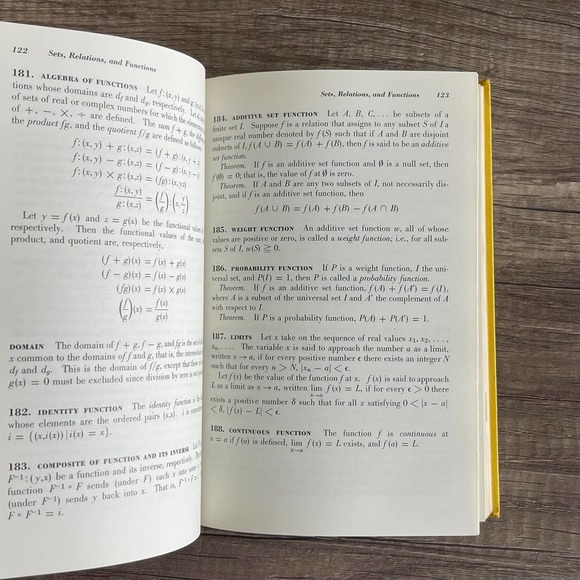 122 Sets, Relations, and Functions
181. ALGEBRA OF FUNCTIONS Let f:(x,y) and g:
tions whose domains are d_f and d_g, respectively. Let
of sets of real or complex numbers for which the
of +, −, ×, ÷ are defined. The sum f + g, the
the product fg, and the quotient f/g are defined as follows:
f:(x,y) + g:(x,z) = (f + g):(x,y + z)
f:(x,y) − g:(x,z) = (f − g):(x,y − z)
f:(x,y) × g:(x,z) = (fg):(x,yz)
f:(x,y)/g:(x,z) = (f/g):(x,y/z)
Let y = f(x) and z = g(x) be the functional
respectively. Then the functional values of the
product, and quotient are, respectively,
(f + g)(x) = f(x) + g(x)
(f − g)(x) = f(x) − g(x)
(fg)(x) = f(x) × g(x)
(f/g)(x) = f(x)/g(x)
DOMAIN The domain of f + g, f − g, and fg is the
x common to the domains of f and g, that is, the
d_f and d_g. This is the domain of f/g, except that
g(x) = 0 must be excluded since division by zero is not
182. IDENTITY FUNCTION The identity function is the
whose elements are the ordered pairs (x,x).
i = {(x,i(x)) | i(x) = x}.
183. COMPOSITE OF FUNCTION AND ITS INVERSE
F⁻¹:(y,x) be a function and its inverse, respectively.
function F⁻¹ ∘ F sends (under F) each x into
(under F⁻¹) sends y back into x. That is,
F ∘ F⁻¹ = i.
Sets, Relations, and Functions 123
184. ADDITIVE SET FUNCTION Let A, B, C, . . . be subsets of a
finite set I. Suppose f is a relation that assigns to any subset S of I a
unique real number denoted by f(S) such that if A and B are disjoint
subsets of I, f(A ∪ B) = f(A) + f(B), then f is said to be an additive
set function.
Theorem. If f is an additive set function and Ø is a null set, then
f(Ø) = 0; that is, the value of f at Ø is zero.
Theorem. If A and B are any two subsets of I, not necessarily dis-
joint, and if f is an additive set function, then
f(A ∪ B) = f(A) + f(B) − f(A ∩ B)
185. WEIGHT FUNCTION An additive set function w, all of whose
values are positive or zero, is called a weight function; i.e., for all sub-
sets S of I, w(S) ≧ 0.
186. PROBABILITY FUNCTION If P is a weight function, I the uni-
versal set, and P(I) = 1, then P is called a probability function.
Theorem. If f is an additive set function, f(A) + f(A') = f(I),
where A is a subset of the universal set I and A' the complement of A
with respect to I.
Theorem. If P is a probability function, P(A) + P(A') = 1.
187. LIMITS Let x take on the sequence of real values x₁, x₂, . . . ,
xₙ, . . . . The variable x is said to approach the number a as a limit,
written x → a, if for every positive number ϵ there exists an integer N
such that for every n > N, |xₙ − a| < ϵ.
Let f(x) be the value of the function f at x. f(x) is said to approach
L as a limit as x → a, written lim f(x) = L, if for every ϵ > 0 there
x→a
exists a positive number δ such that for all x satisfying 0 < |x − a|
< δ, |f(x) − L| < ϵ.
188. CONTINUOUS FUNCTION The function f is continuous at
x = a if f(a) is defined, lim f(x) = L exists, and f(a) = L.
x→a